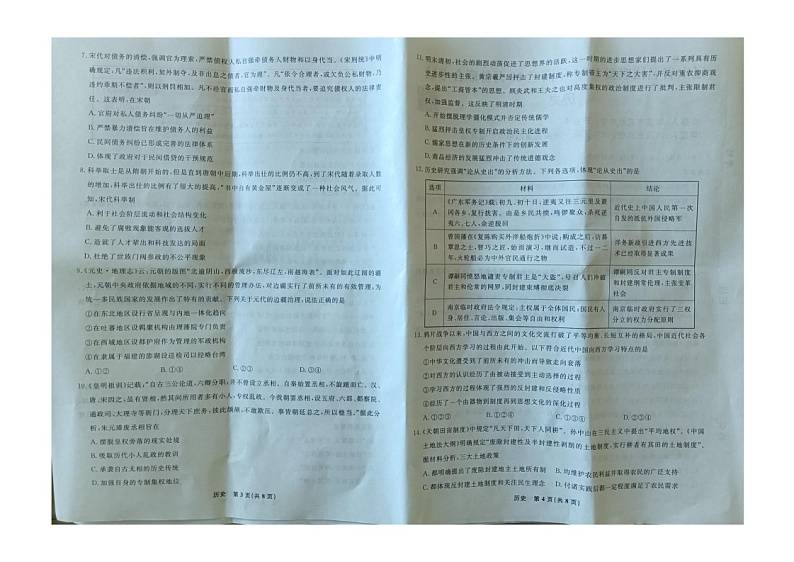 7. 宋代对债务的清偿,强调官为理索,严禁债权人私自强牵债务人财物和以身代当。《宋刑统》中明
确规定,凡“违法积利、如外制夺,及非出息之债者,官为理”。凡“依令合理者,或欠负公私财物,乃
违约乖期不偿者”,则以刑罚相加。凡不经官而私自强牵财物及身代当者,要追究债权人的法律责
任。这表明,在宋朝
A. 官府对私人债务纠纷“一切从严追理”
B. 严禁暴力清偿旨在维护债务人的利益
C. 民间债务纠纷已形成完善的法律制度
D. 体现了政府对于民间借贷的干预规范
8. 科举取士是从隋朝开始的,但是直到唐朝中后期,科举出仕的比例仍不高,到了宋代随着录取人数
的增多,科举出仕的比例有了很大的提高,“书中自有黄金屋”逐渐变成了一种社会风气。据此可
知,宋代科举制
A. 有利于社会阶层流动和社会结构变化
B. 避免了腐败现象能客观的发现人才
C. 造就了人才辈出和科技发达的局面
D. 杜绝了世族门阀参政的不公平现象
9. 《元史·地理志》云,元朝的版图“北逾阴山,西极流沙,东尽辽左,南越海表”。面对如此辽阔的疆
土,元朝中央政府依据地域的不同,实行不同的管理办法,对边疆实行了前所未有的有效管理,为
统一多民族国家的发展作出了重要贡献。下列关于元代的边疆治理,说法正确的是
①在东北地区设行省呈现与内地一体化趋向
②在吐蕃地区设羁縻机构由理藩院专门负责
③在西域地区设都护府作为管理的军政机构
④在隶属于福建的澎湖设巡检司以经略台湾
A. ①②③
B. ①②④
C. ①③④
D. ②③④
10. 《皇明祖训》记载:“自古三公论道,六卿分职,并不曾设立丞相。自秦始置丞相,不旋踵而亡。汉、
唐、宋因之,虽有贤相,然其间所用者多有小人,专权乱政。今我朝罢丞相,设五府、六部、都察院、
通政司、大理寺等衙门,分理天下庶务,彼此颉颃,不敢欺压,事皆朝廷总之,所以稳当。”据此分
析,朱元璋废丞相旨在
A. 摆脱皇权旁落的现实处境
B. 吸取历代小人乱政的教训
C. 承袭自古无相的历史传统
D. 加强自身的专制集权地位
历史 第 3 页(共 8 页)
11. 明末清初,社会的剧烈动荡促进了思想界的活跃,这一时期的进步思想家们提出了一系列具有历
史进步性的主张。黄宗羲严厉抨击了封建制度,称专制君王为“天下之大害”,并反对重农抑商观
念,提出“工商皆本”的思想。顾炎武和王夫之也对高度集权的政治制度进行了批判,主张限制君
权,加强监督。这反映了明清时期
A. 开始摆脱理学僵化模式并否定传统儒学
B. 猛烈抨击皇权专制开启政治民主化进程
C. 儒家思想在新的历史条件下的创新发展
D. 商品经济的发展猛烈冲击了传统儒学
12. 历史研究强调“论从史出”的分析方法。下列各选项,体现“论从史出”的是
选项 材料 结论
A 《广东军务记》载:初九、初十日,逆夷又往三元里及萧冈各乡,复行扰害。由是乡民共愤,鸣锣聚众,杀死逆夷六、七人,余逆脱回 近代史上中国人民第一次自发的抵抗外国侵略军
B 曾国藩在《复陈购买外洋船炮折》中说:购成之后,访募覃思之士,智巧之匠,始而演习,继而试造,不过一二年,火轮船必为中外官民通行之物 洋务新政引进西方先进技术已经取得显著效果
C 谭嗣同愤怒地谴责专制君主是“大盗”,号召人们冲破君主和伦常的网罗,同封建束缚彻底决裂 谭嗣同反对君主专制制度和封建纲常伦理,主张变革社会
D 南京临时政府法令规定,主权属于全体国民;国民有人身、居住、言论、出版、集会等自由和权利 南京临时政府实行了三权分立的权力分配原则
13. 鸦片战争以来,中国与西方之间的文化交流打破了平等均衡、长短互补的格局,中国近代社会各
个阶层向西方学习的过程由此开始。以下符合近代中国向西方学习特点的是
①中华文化遭受到了前所未有的冲击而导致走向衰落
②对西方的认识经历了由被动接受到主动选择的过程
③学习西方的过程体现了强烈的反封建和反侵略性质
④经历了一个由器物到制度再到思想文化的深化过程
A. ①②③④
B. ①②④
C. ①③④
D. ②③④
14. 《天朝田亩制度》中规定“凡天下田,天下人同耕”。孙中山在三民主义中提出“平均地权”。《中国
土地法大纲》明确规定“废除封建性及半封建性剥削的土地制度,实行耕者有其田的土地制度”。
据材料分析,三大土地政策
A. 都明确提出了废除封建地主土地所有制
B. 均维护农民利益并取得农民的广泛支持
C. 都体现反封建土地制度和关注民生理念
D. 付诸实践后都一定程度满足了农民需求
历史 第 4 页(共 8 页)